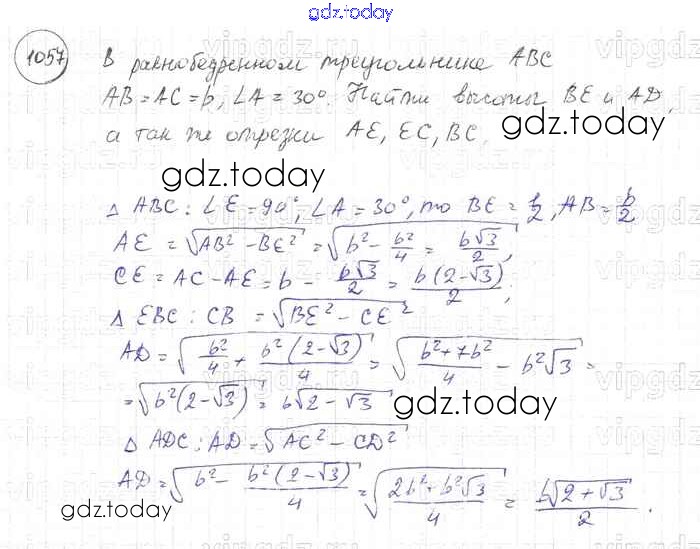 gdz.today
1057 В равнобедренном треугольнике ABC
AB = AC = b, ∠A = 30°. Найти высоты BE и AD,
а так же отрезки AE, EC, BC.
gdz.today
gdz.today
△ ABC : ∠E = 90°, ∠A = 30°, то BE = 1/2, AB = b/2
AE = √(AB² - BE²) = √(b² - b²/4) = b√3/2;
CE = AC - AE = b - b√3/2 = b(2-√3)/2;
△ EBC : CB = √(BE² - CE²)
AD = √(b²/4 + b²(2-√3)/4) = √((b²+7b²)/4 - b²√3) =
= √(b²(2-√3)) = b√2-√3
gdz.today
△ ADC : AD = √(AC² - CD²)
AD = √(b² - b²(2-√3)/4) = √((2b²+b²√3)/4) = b√(2+√3)/2.
gdz.today